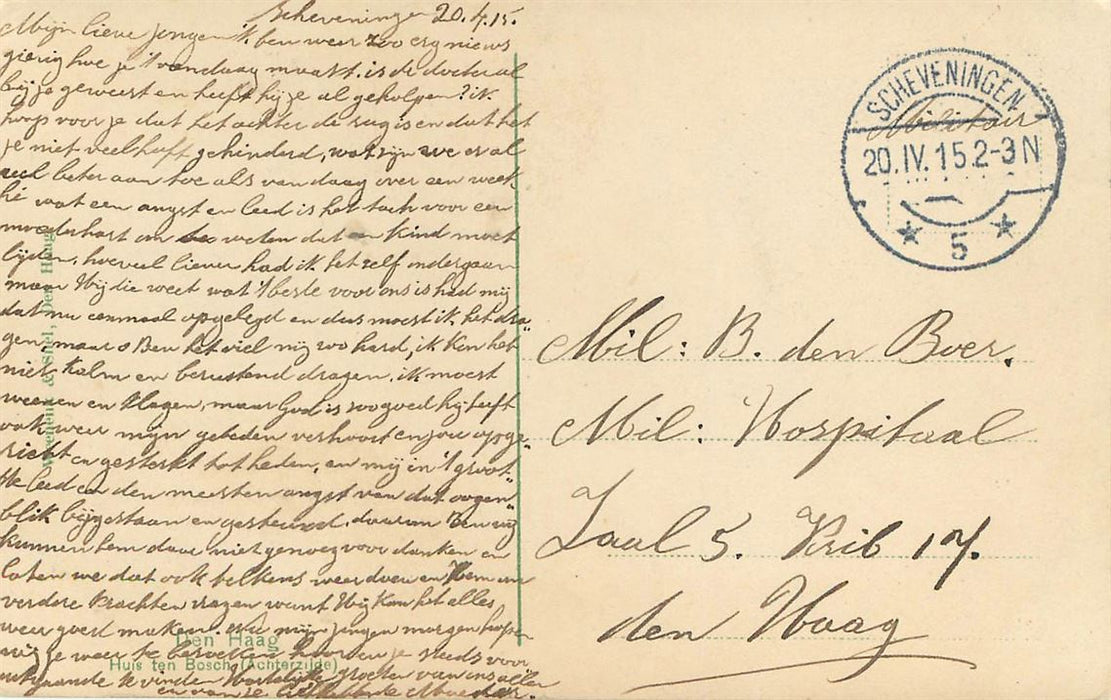 Scheveningen 20.4.15.
Mijn lieve jongen ik ben weer zoo erg nieuws
gierig hoe je 't vandaag maakt. is de docter al
bij je geweest en heeft hij je al geholpen? ik
hoop voor je dat het achter de rug is en dat het
je niet veel heeft gehinderd, wat zijn we er al
veel beter aan toe als vandaag over een week.
hé wat een angst en leed is het toch voor een
moederhart om te weten dat een kind moet
lijden, hoeveel liever had ik het zelf ondergaan
maar Hij die weet wat 't beste voor ons is had mij
dat nu eenmaal opgelegd en dus moest ik het dra"
gen, maar o Ben het viel mij zoo hard, ik kon het
niet kalm en berustend dragen. ik moest
weenen en klagen, maar God is zoo goed hij heeft
ook weer mijn gebeden verhoord en jou opge"
richt en gesterkt tot heden, en mij in 't groot"
ste leed en den meesten angst van dat oogen"
blik bijgestaan en gesteund. daarom Ben wij
kunnen hem daar niet genoeg voor danken en
laten we dat ook telkens weer doen en Hem om
verdere krachten vragen want Hij kan het alles
weer goed maken. mijn jongen morgen hoop
wij je weer te
te vinden Hartelijke Groeten van ons allen
en van je Moeder.
Wwe
& Snel, Den Haag
Den Haag
Huis ten Bosch (Achterzijde)
SCHEVENINGEN
Militair
20.IV.15 2-3 N
5
Mil: B. den Boer.
Mil: Hospitaal
Zaal 5. Krib 17.
den Haag